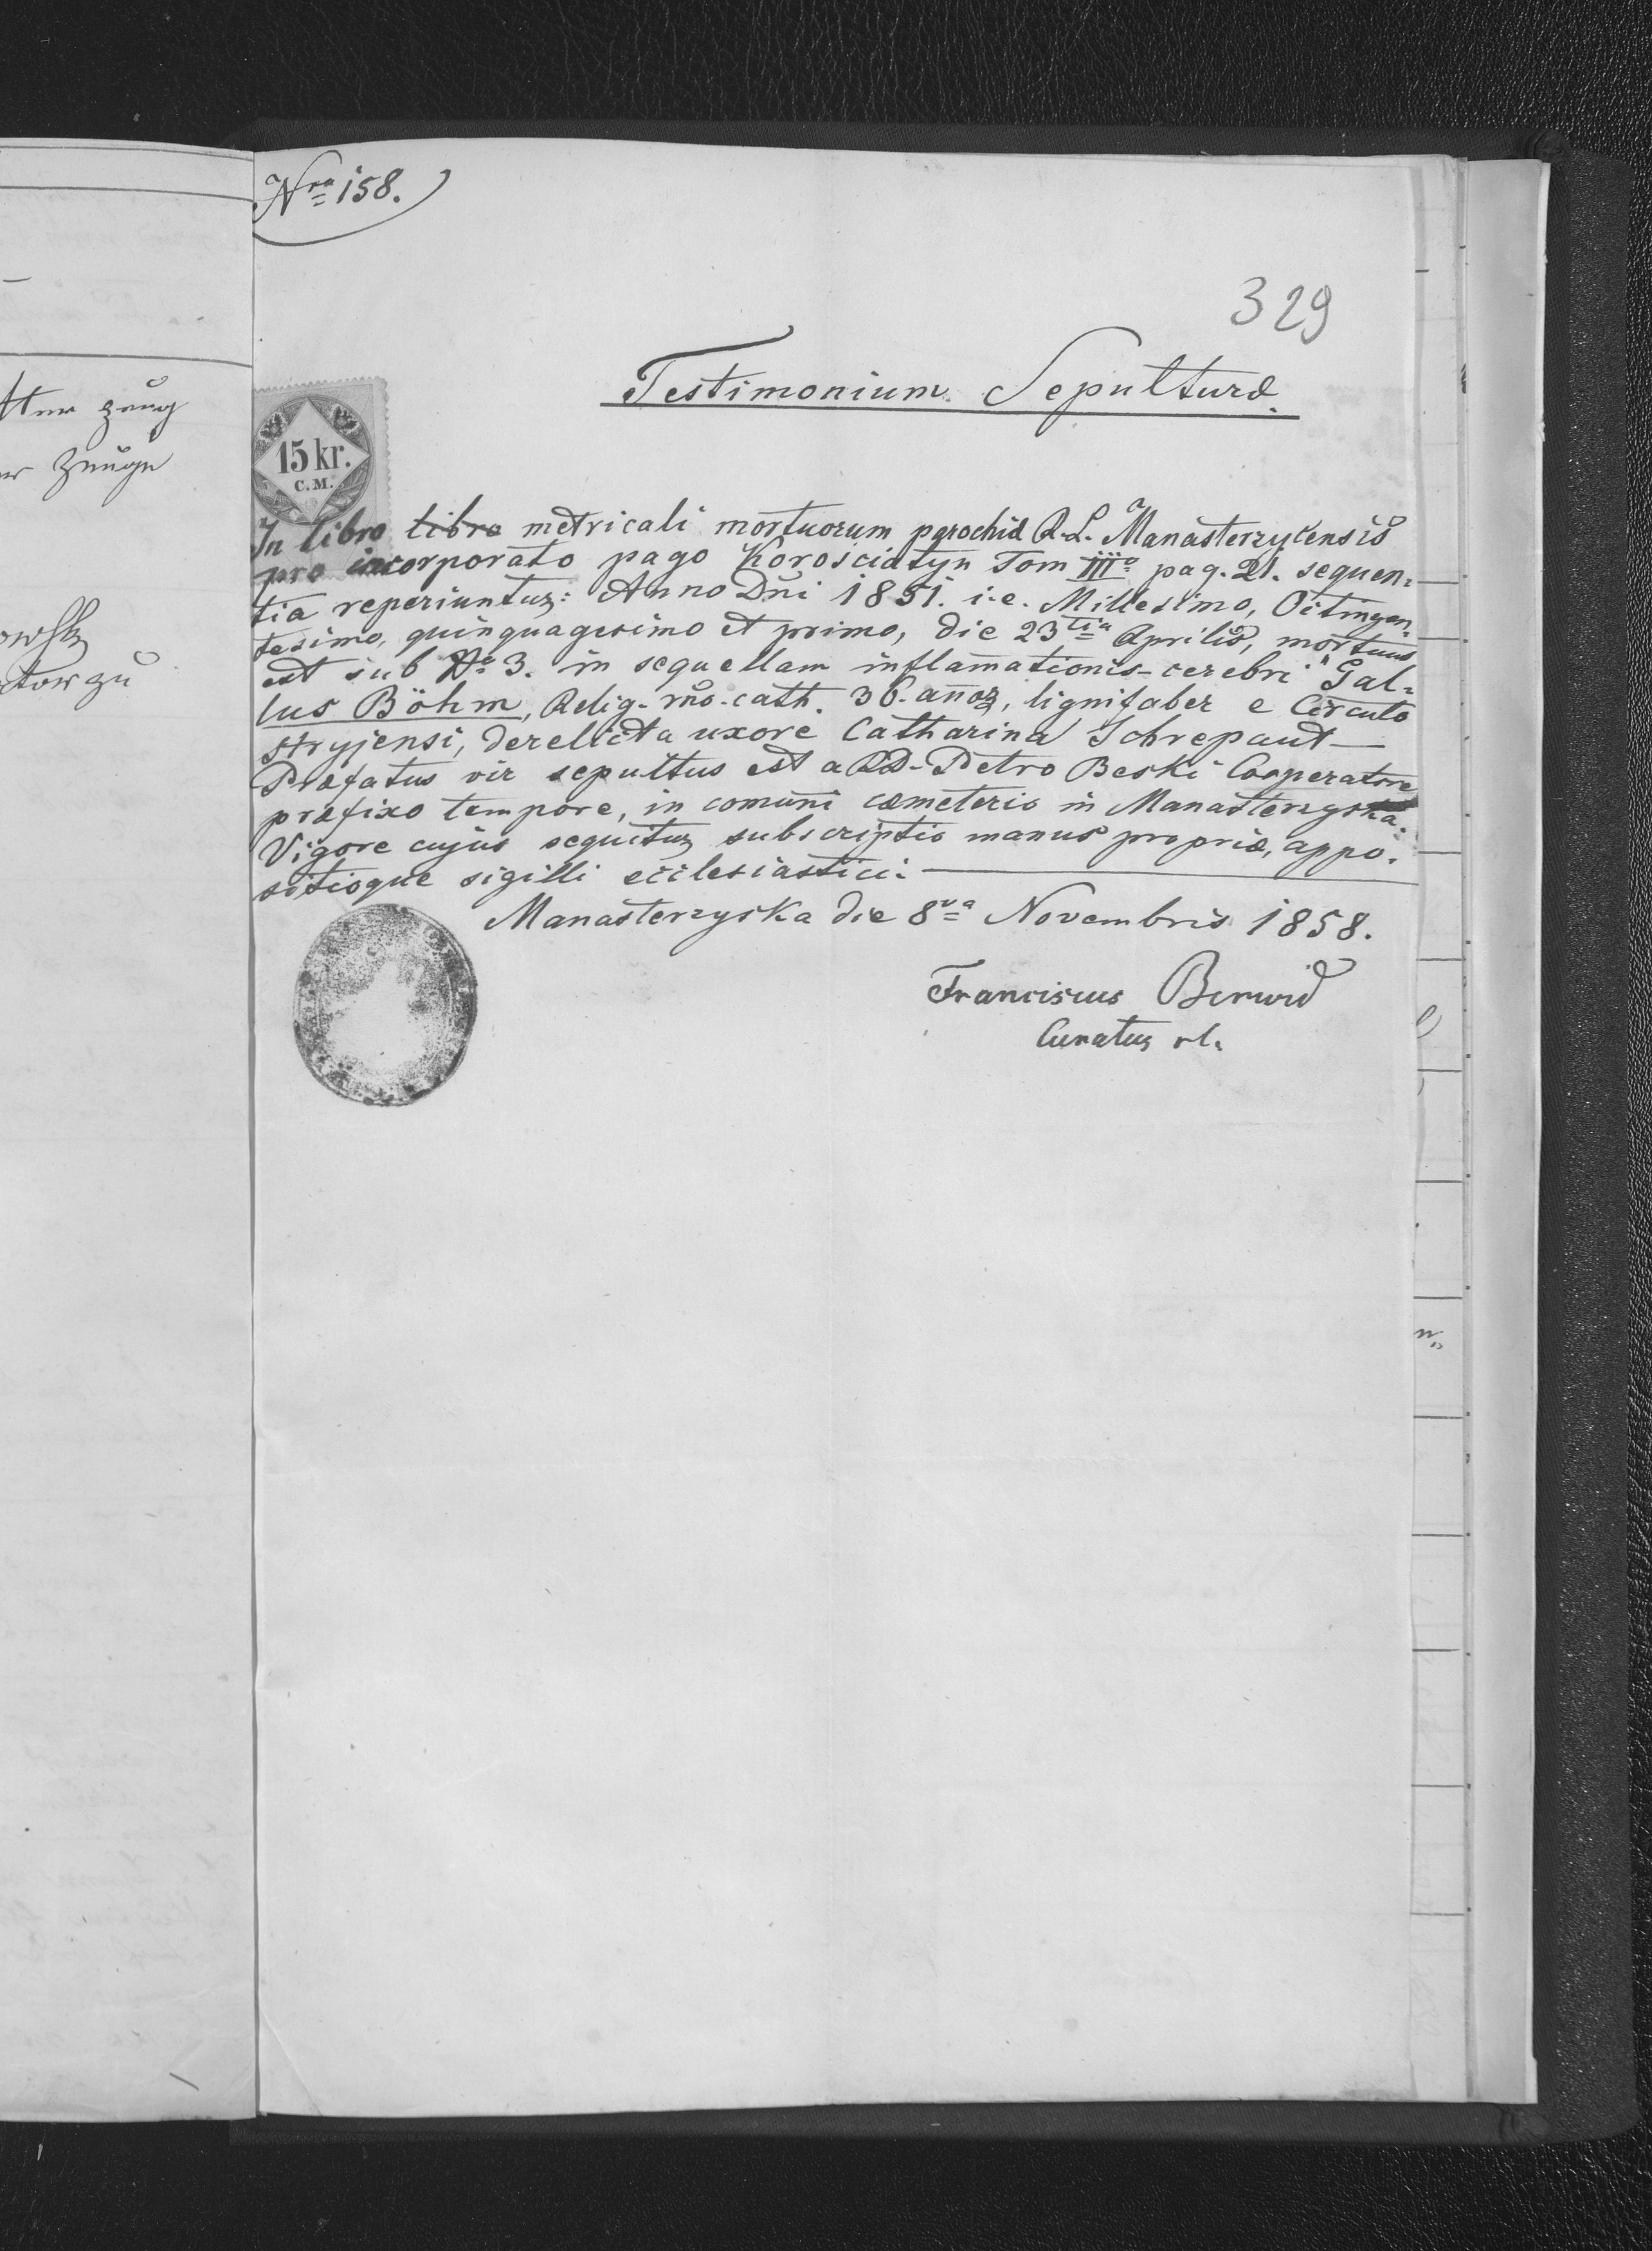 Nra 158.
329
Testimonium Sepulturæ.
15 kr.
C.M.
In libro libro metricali mortuorum parochiæ R. L. Manasterzycensis
pro incorporato pago Korosciatyn Tom IIIo pag. 21. sequen-
tia reperiuntur: Anno Dni 1851. i.e. Millesimo, Octingen-
tesimo, quinquagesimo et primo, die 23tia Aprilis, mortuus
est sub No 3. in sequellam inflamationis-cerebri "Gal-
lus Böhm, Relig. rño. cath. 36. añor, lignifaber e Circulo
stryjensi, derelicta uxore Catharina Schrepaut —
Præfatus vir sepultus est a RD. Petro Beski Cooperatore
præfixo tempore, in comuni cœmeterio in Manasterzyska.
Vigore cujus sequitur subscriptio manus propriæ, appo-
sitioque sigilli ecclesiastici. —
Manasterzyska die 8va Novembris 1858.
Franciscus Berwid
Curatus rl.
zeug
Zeuge
zu